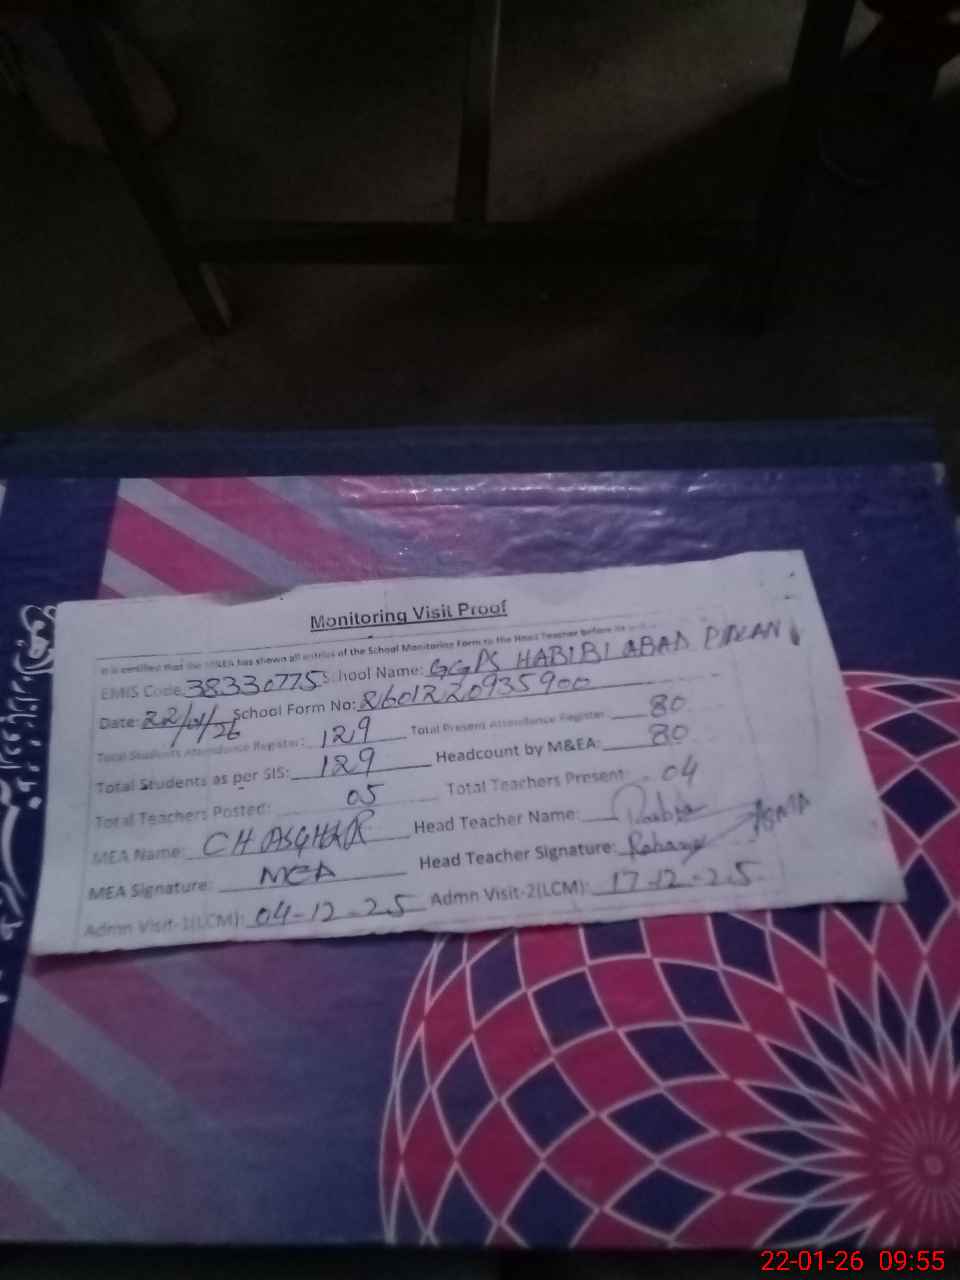 Monitoring Visit Proof
It is certified that the MEA has shown all entries of the School Monitoring Form to the Head Teacher before
EMIS Code: 38330775 School Name: GGPS HABIBI ABAD
Date: 22/01/26 School Form No: 8601220935900
Total Students Attendance Register: 129 Total Present Attendance Register: 80
Total Students as per SIS: 129 Headcount by M&EA: 80
Total Teachers Posted: 05 Total Teachers Present: 04
MEA Name: CH ASGHAR Head Teacher Name:
MEA Signature: MEA Head Teacher Signature:
Admn Visit-1(LCM): 04-12-25 Admn Visit-2(LCM): 17-12-25
22-01-26 09:55